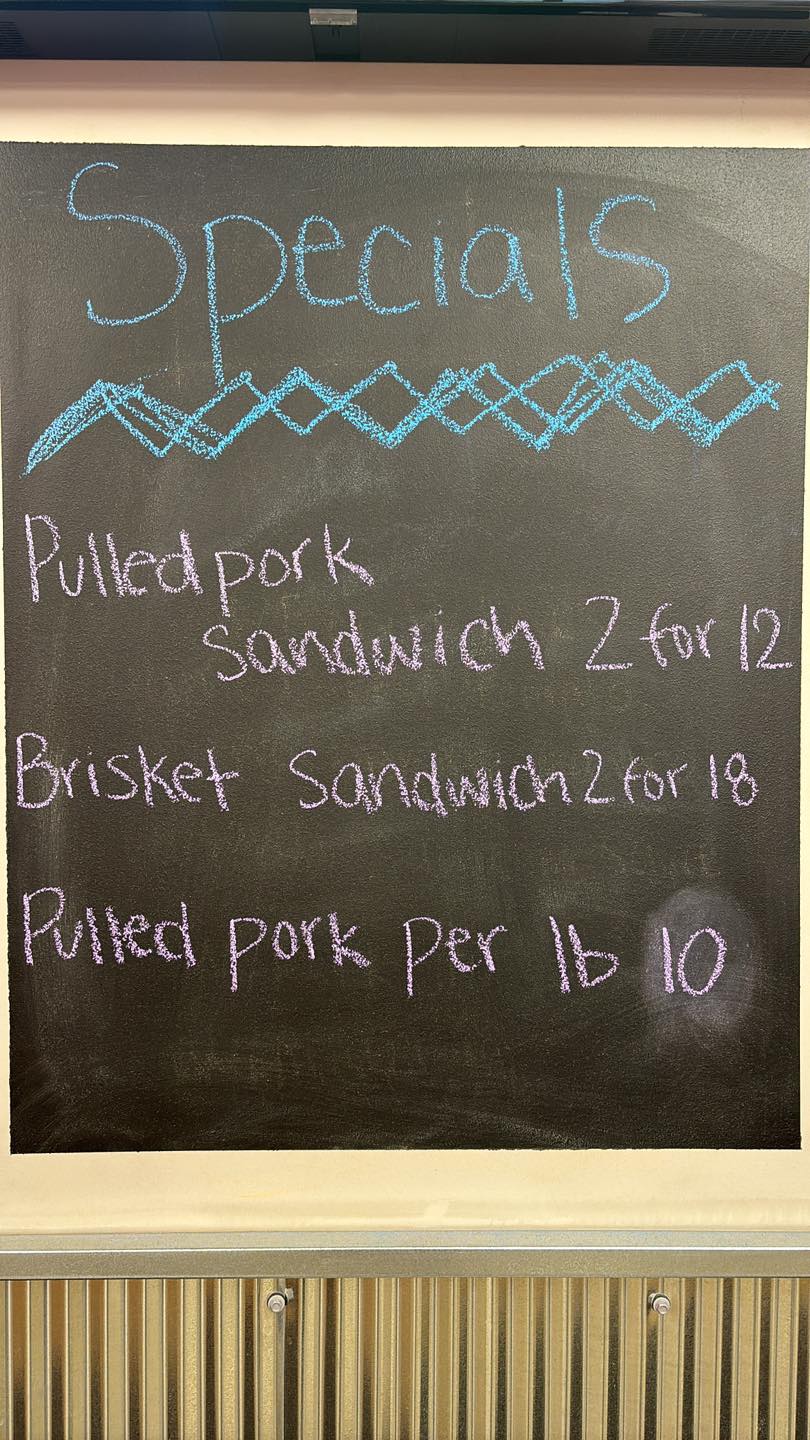 Specials
Pulled pork
Sandwich 2 for 12
Brisket Sandwich 2 for 18
Pulled pork per lb 10